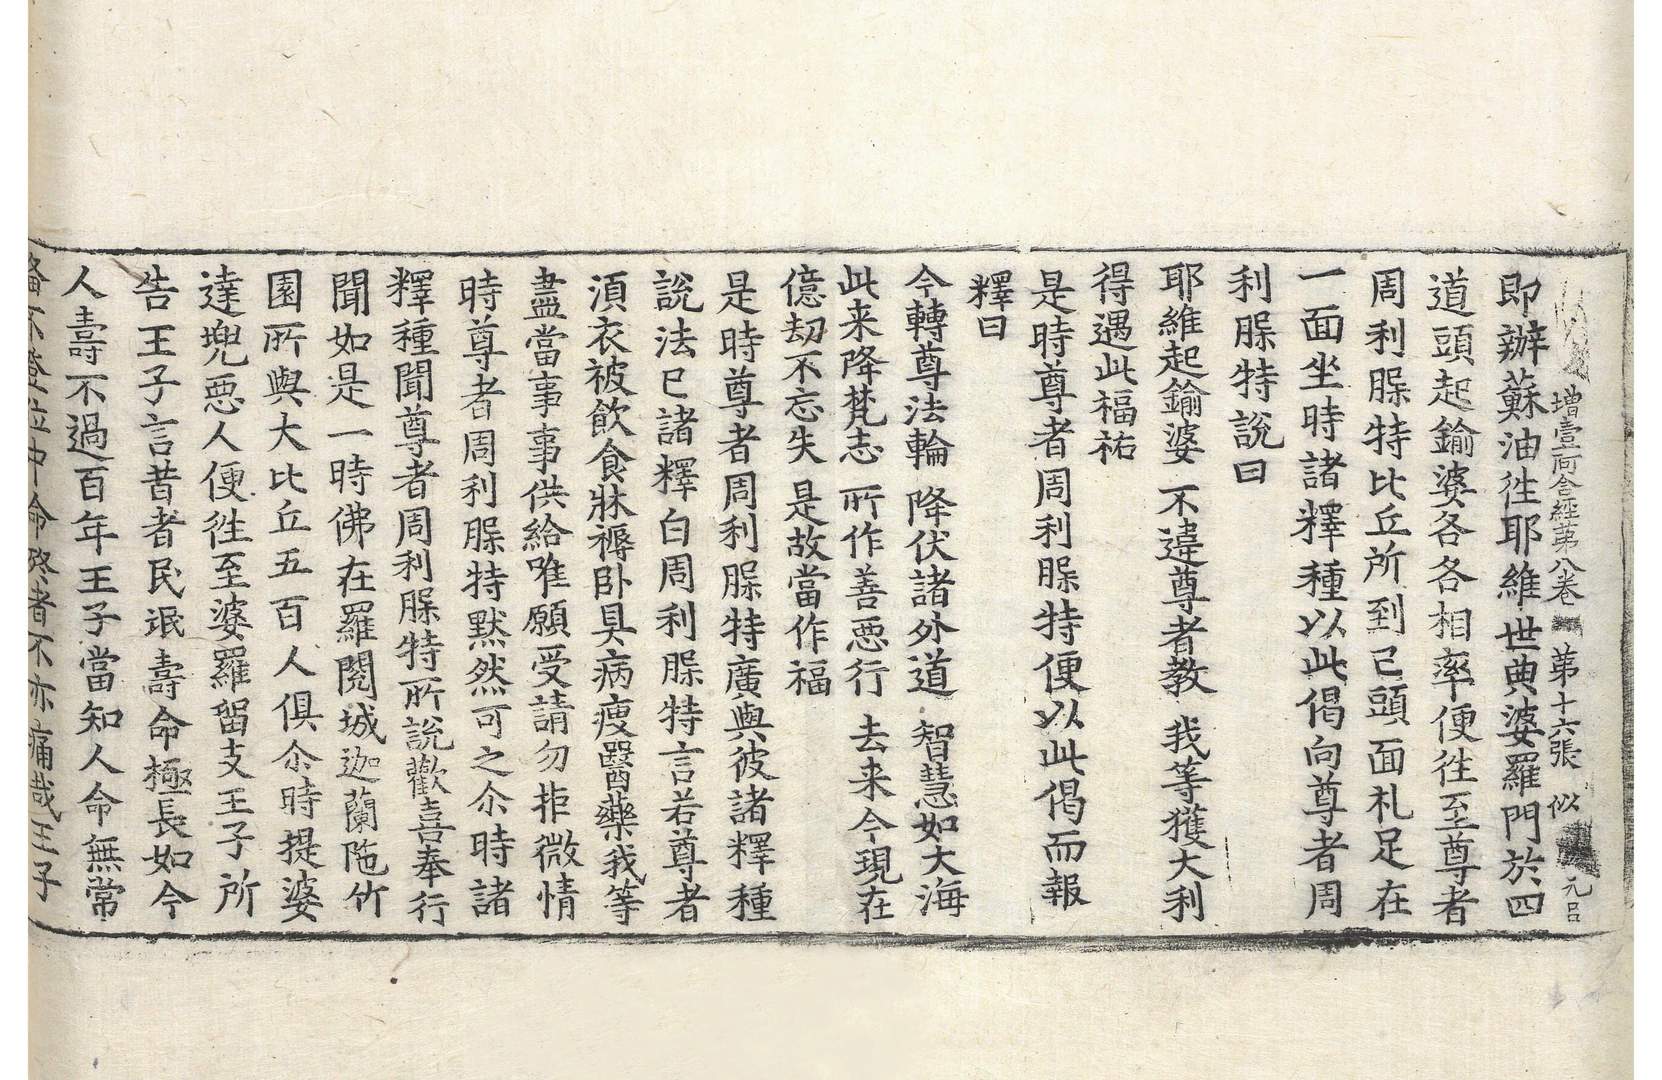 增壹阿含經第八卷 第十六張 似 元吕
即辦蘇油往耶維世典婆羅門於四
道頭起鍮婆各各相率便往至尊者
周利脵特比丘所到已頭面札足在
一面坐時諸釋種以此偈向尊者周
利脵特說曰
耶維起鍮婆 不違尊者教 我等獲大利
得遇此福祐
是時尊者周利脵特便以此偈而報
釋曰
今轉尊法輪 降伏諸外道 智慧如大海
此来降梵志 所作善惡行 去来今現在
億劫不忘失 是故當作福
是時尊者周利脵特廣與彼諸釋種
說法已諸釋白周利脵特言若尊者
湏衣被飲食牀褥卧具病瘦醫藥我等
盡當事事供給唯願受請勿拒微情
時尊者周利脵特默然可之尒時諸
釋種聞尊者周利脵特所說歡喜奉行
聞如是一時佛在羅閱城迦蘭陁竹
園所與大比丘五百人俱尒時提婆
達兜惡人便往至婆羅留支王子所
告王子言昔者民氓壽命極長如今
人壽不過百年王子當知人命無常
俻不登位中命終者不亦痛哉王子